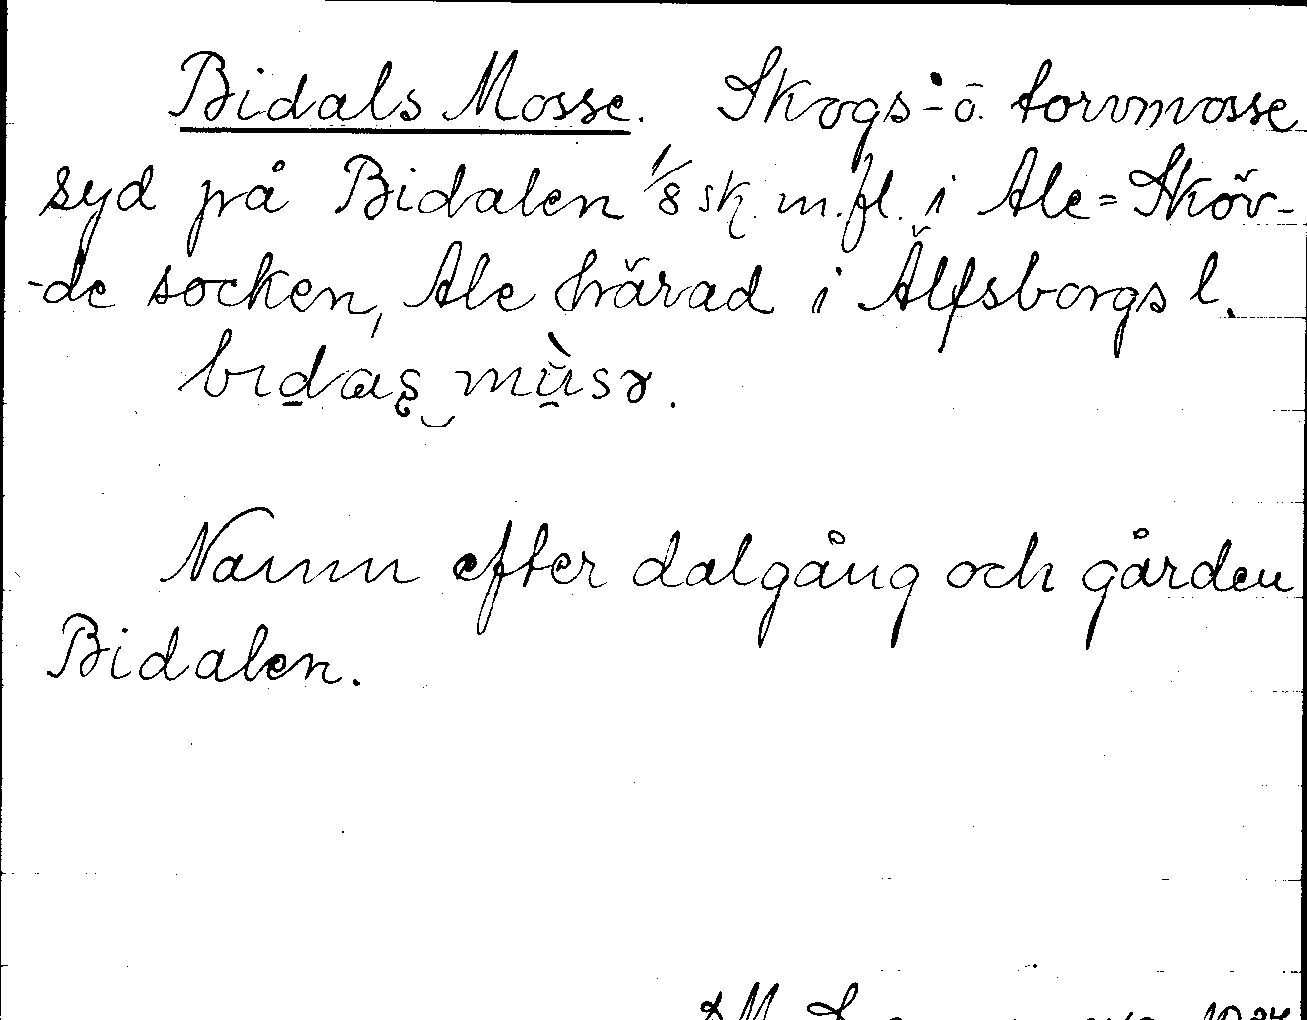 Bidals Mosse. Skogs- o. torvmosse
syd på Bidalen 1/8 sk. m. fl. i Ale=Sköv-
-de socken, Ale härad i Älfsborgs l.
bıdas mùsə.
Namn efter dalgång och gården
Bidalen.